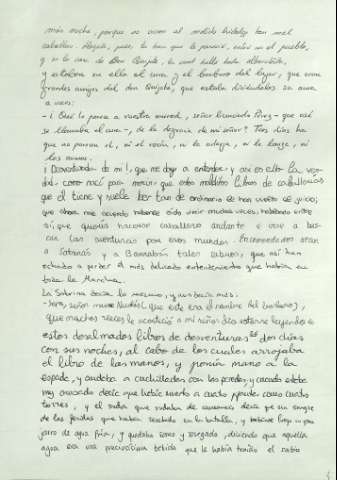 más noche, porque no viesen al molido hidalgo tan mal
caballero. Llegada, pues, la hora que le pareció, entró en el pueblo,
y en la casa de Don Quijote, la cual halló toda alborotada,
y estaban en ella el cura y el barbero del lugar, que eran
grandes amigos de don Quijote, que estaba diciéndoles su ama
a voces:
- ¿ Qué le parece a vuestra merced, señor licenciado Pérez - que así
se llamaba el cura -, de la desgracia de mi señor? Tres días ha
que no parecen él, ni el rocín, ni la adarga, ni la lanza, ni
las armas.
¡ Desventurada de mí!, que me doy a entender, y así es ello la ver-
dad como nací para morir, que estos malditos libros de caballerías
que él tiene y suele leer tan de ordinario le han vuelto el juicio;
que ahora me acuerdo haberle oído decir muchas veces, hablando entre
sí, que quería hacerse caballero andante e irse a bus-
car las aventuras por esos mundos. Encomendados sean
a Satanás y a Barrabás tales libros, que así han
echado a perder el más delicado entendimiento que había en
toda la Mancha.
La Sobrina decía lo mesmo, y aun decía más.
- Sepa, señor maese Nicolás (que este era el nombre del barbero),
que muchas veces le aconteció a mi señor tío estarse leyendo en
estos desalmados libros de desventuras dos días
con sus noches, al cabo de los cuales arrojaba
el libro de las manos, y ponía mano a la
espada, y andaba a cuchilladas con las paredes; y cuando estaba
muy cansado decía que había muerto a cuatro gigantes como cuatro
torres, y el sudor que sudaba del cansancio decía que era sangre
de las feridas que había recibido en la batalla, y bebíase luego un gran
jarro de agua fría, y quedaba sano y sosegado, diciendo que aquella
agua era una preciosísima bebida que le había traído el sabio